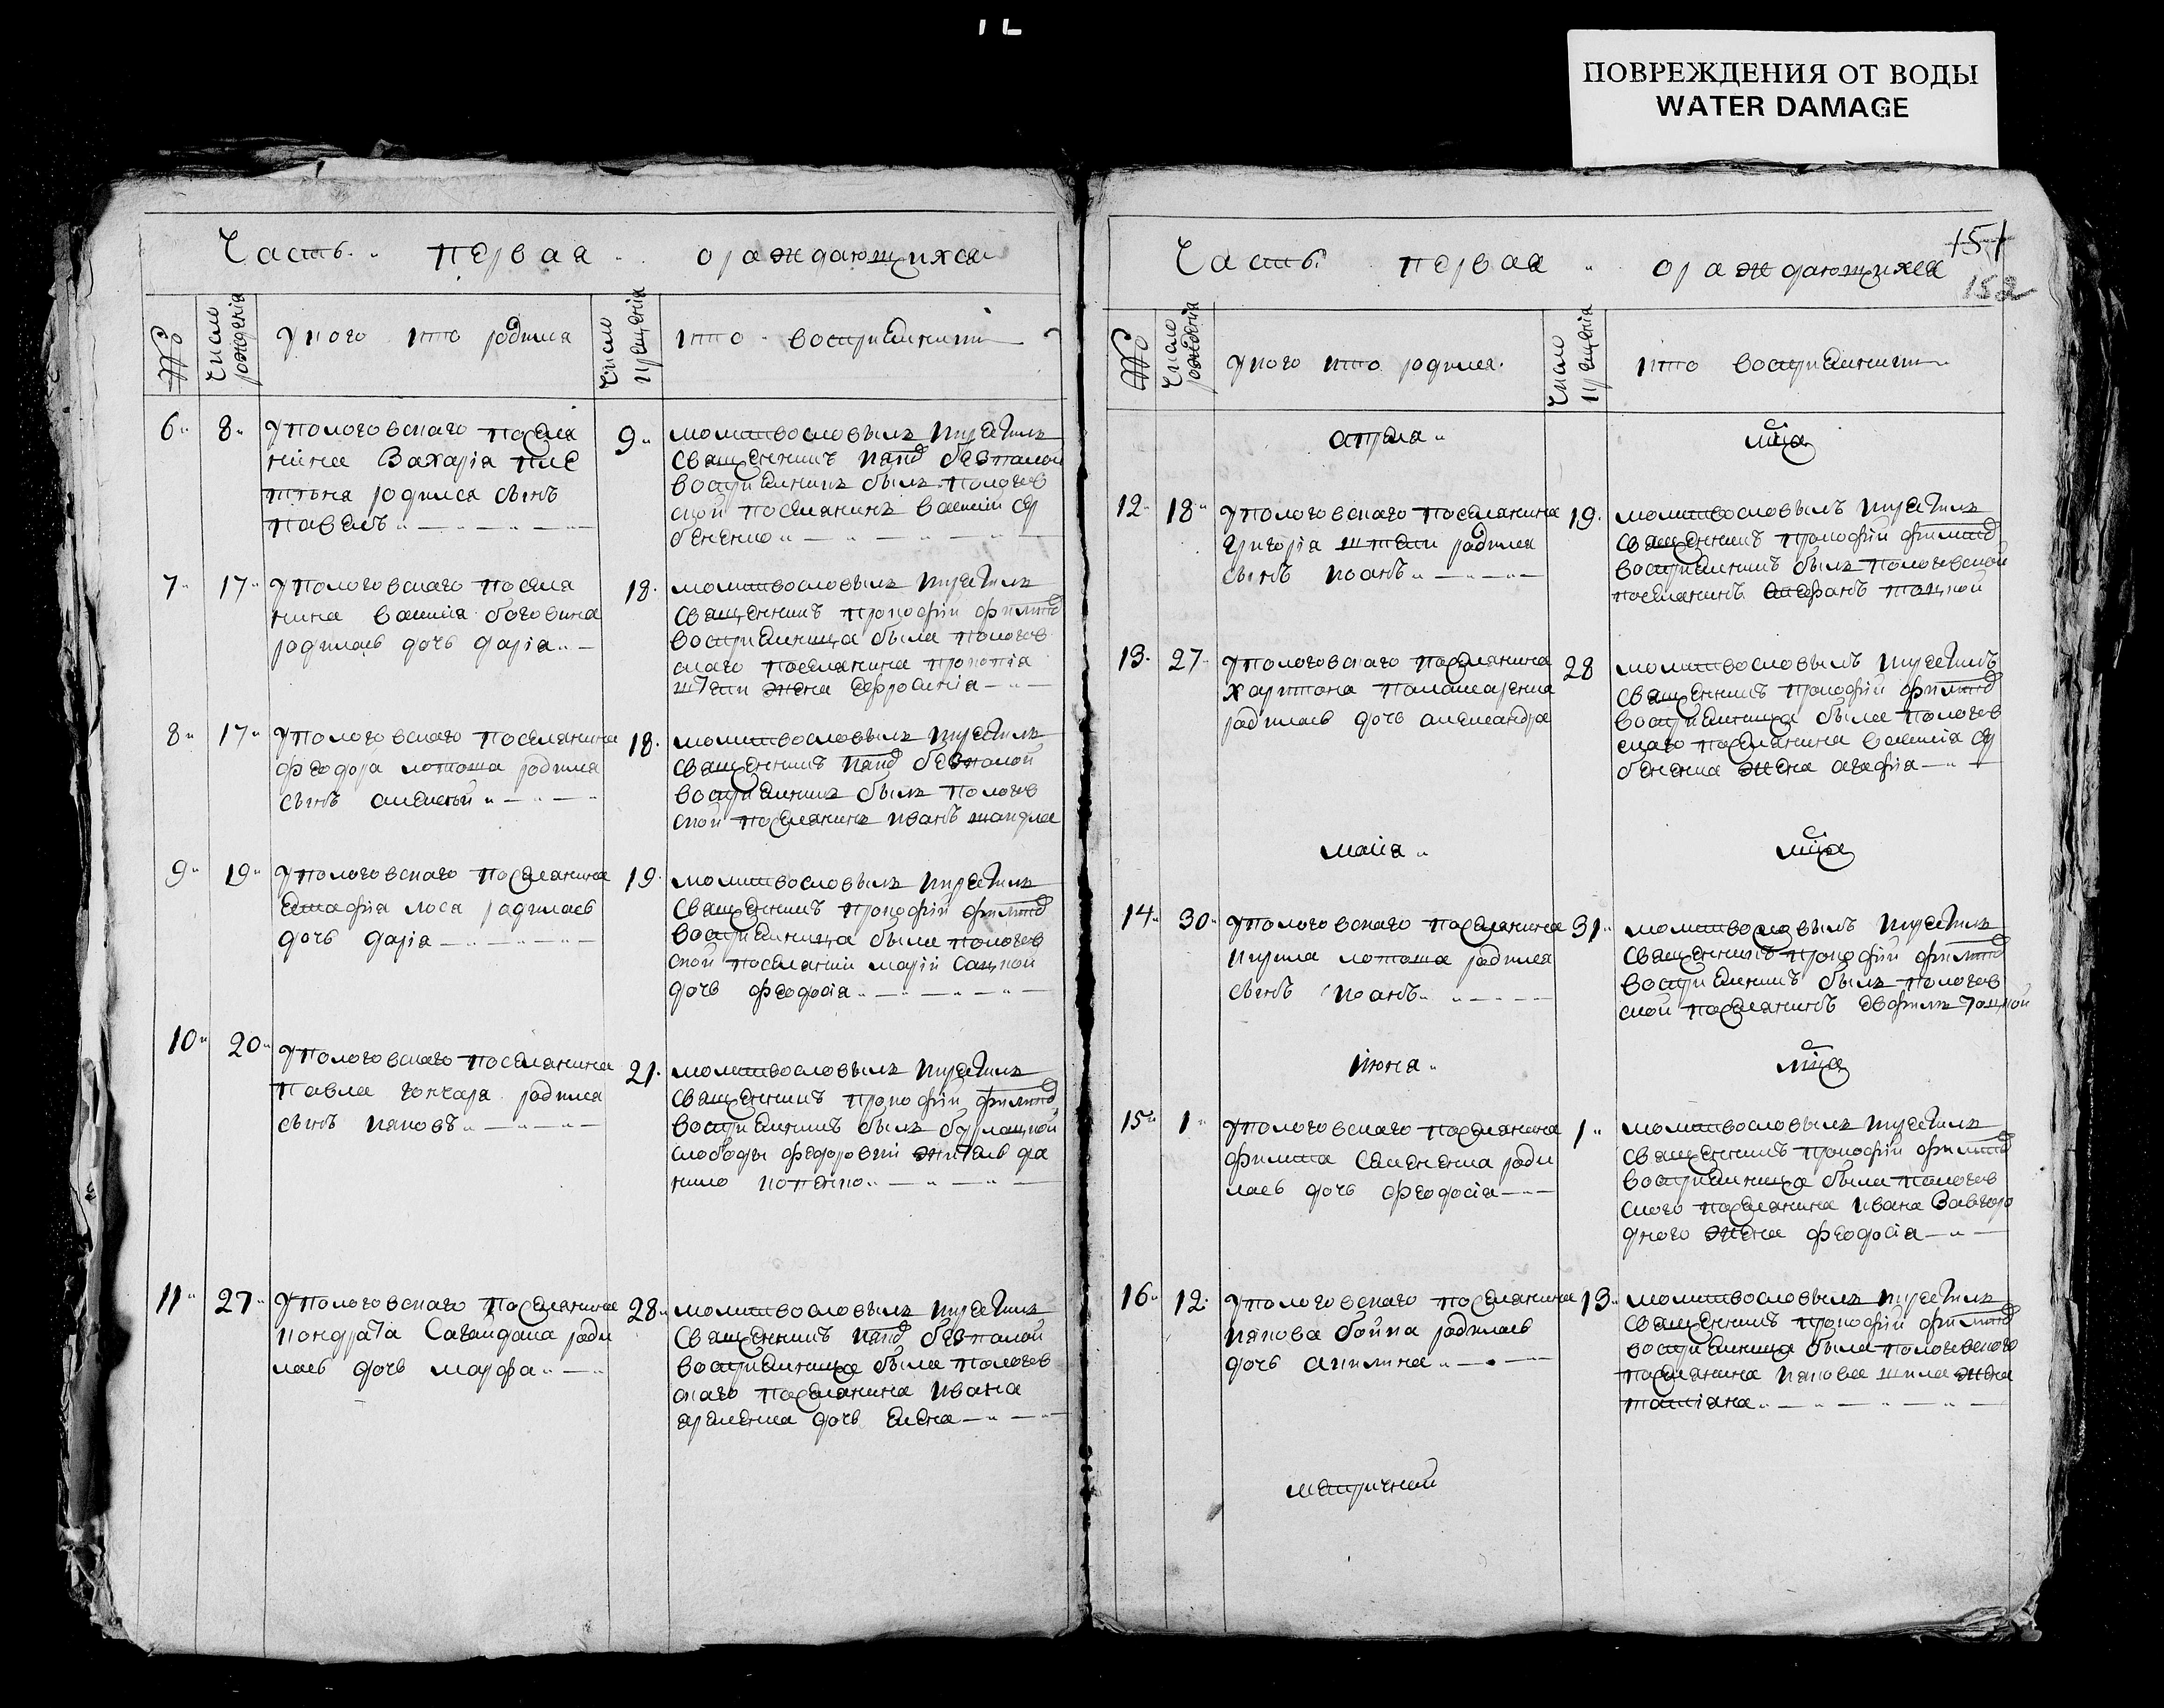 ПОВРЕЖДЕНИЯ ОТ ВОДЫ
WATER DAMAGE
Часть первая ораждающихся
№
Число рождения
у кого кто родился
Число крещения
кто восприемники
6
8
у пологовскаго поселя
нина Захарія
родился сынъ
Павелъ
9
молитвословилъ и крестилъ
священникъ
восприемникъ былъ пологов
ской поселянинъ василій се
бененко
7
17
у пологовскаго поселя
нина василія боговина
родилась дочь дарія
18
молитвословилъ и крестилъ
священникъ прокофій
восприемница была пологов
скаго поселянина прокопія
жена Ефросинія
8
17
у пологовскаго поселянина
феодора родился
сынъ алексѣй
18
молитвословилъ и крестилъ
священникъ
восприемникъ былъ пологов
ской поселянинъ иванъ
9
19
у пологовскаго поселянина
лоса родилась
дочь дарія
19
молитвословилъ и крестилъ
священникъ прокофій
восприемница была пологов
ской поселянки маріи
дочь феодосія
10
20
у пологовскаго поселянина
павла гончара родился
сынъ яковъ
21
молитвословилъ и крестилъ
священникъ прокофій
восприемникъ былъ
слободы федоровки житель да
нило
11
27
у пологовскаго поселянина
кондрата Сагайдака роди
лась дочь марфа
28
молитвословилъ и крестилъ
священникъ
восприемница была пологов
скаго поселянина ивана
яременка дочь елена
Часть первая ораждающихся
151
152
№
Число рождения
у кого кто родился
Число крещения
кто восприемники
апреля
мца
12
18
у пологовскаго поселянина
григорія родился
сынъ иоанъ
19
молитвословилъ и крестилъ
священникъ прокофій
восприемникъ былъ пологовской
поселянинъ
13
27
у пологовскаго поселянина
харитона паламаренка
родилась дочь александра
28
молитвословилъ и крестилъ
священникъ прокофій
восприемница была пологов
скаго поселянина василія се
бененка жена агафія
маія
мца
14
30
у пологовскаго поселянина
кирила родился
сынъ иоанъ
31
молитвословилъ и крестилъ
священникъ прокофій
восприемникъ былъ пологов
ской поселянинъ
июня
мца
15
1
у пологовскаго поселянина
филипа Семененка роди
лась дочь феодосія
1
молитвословилъ и крестилъ
священникъ прокофій
восприемница была пологов
ского поселянина ивана Завгоро
дного жена феодосія
16
12
у пологовскаго поселянина
якова бойка родилась
дочь акилина
13
молитвословилъ и крестилъ
священникъ прокофій
восприемница была пологовского
поселянина якова шила жена
татіяна